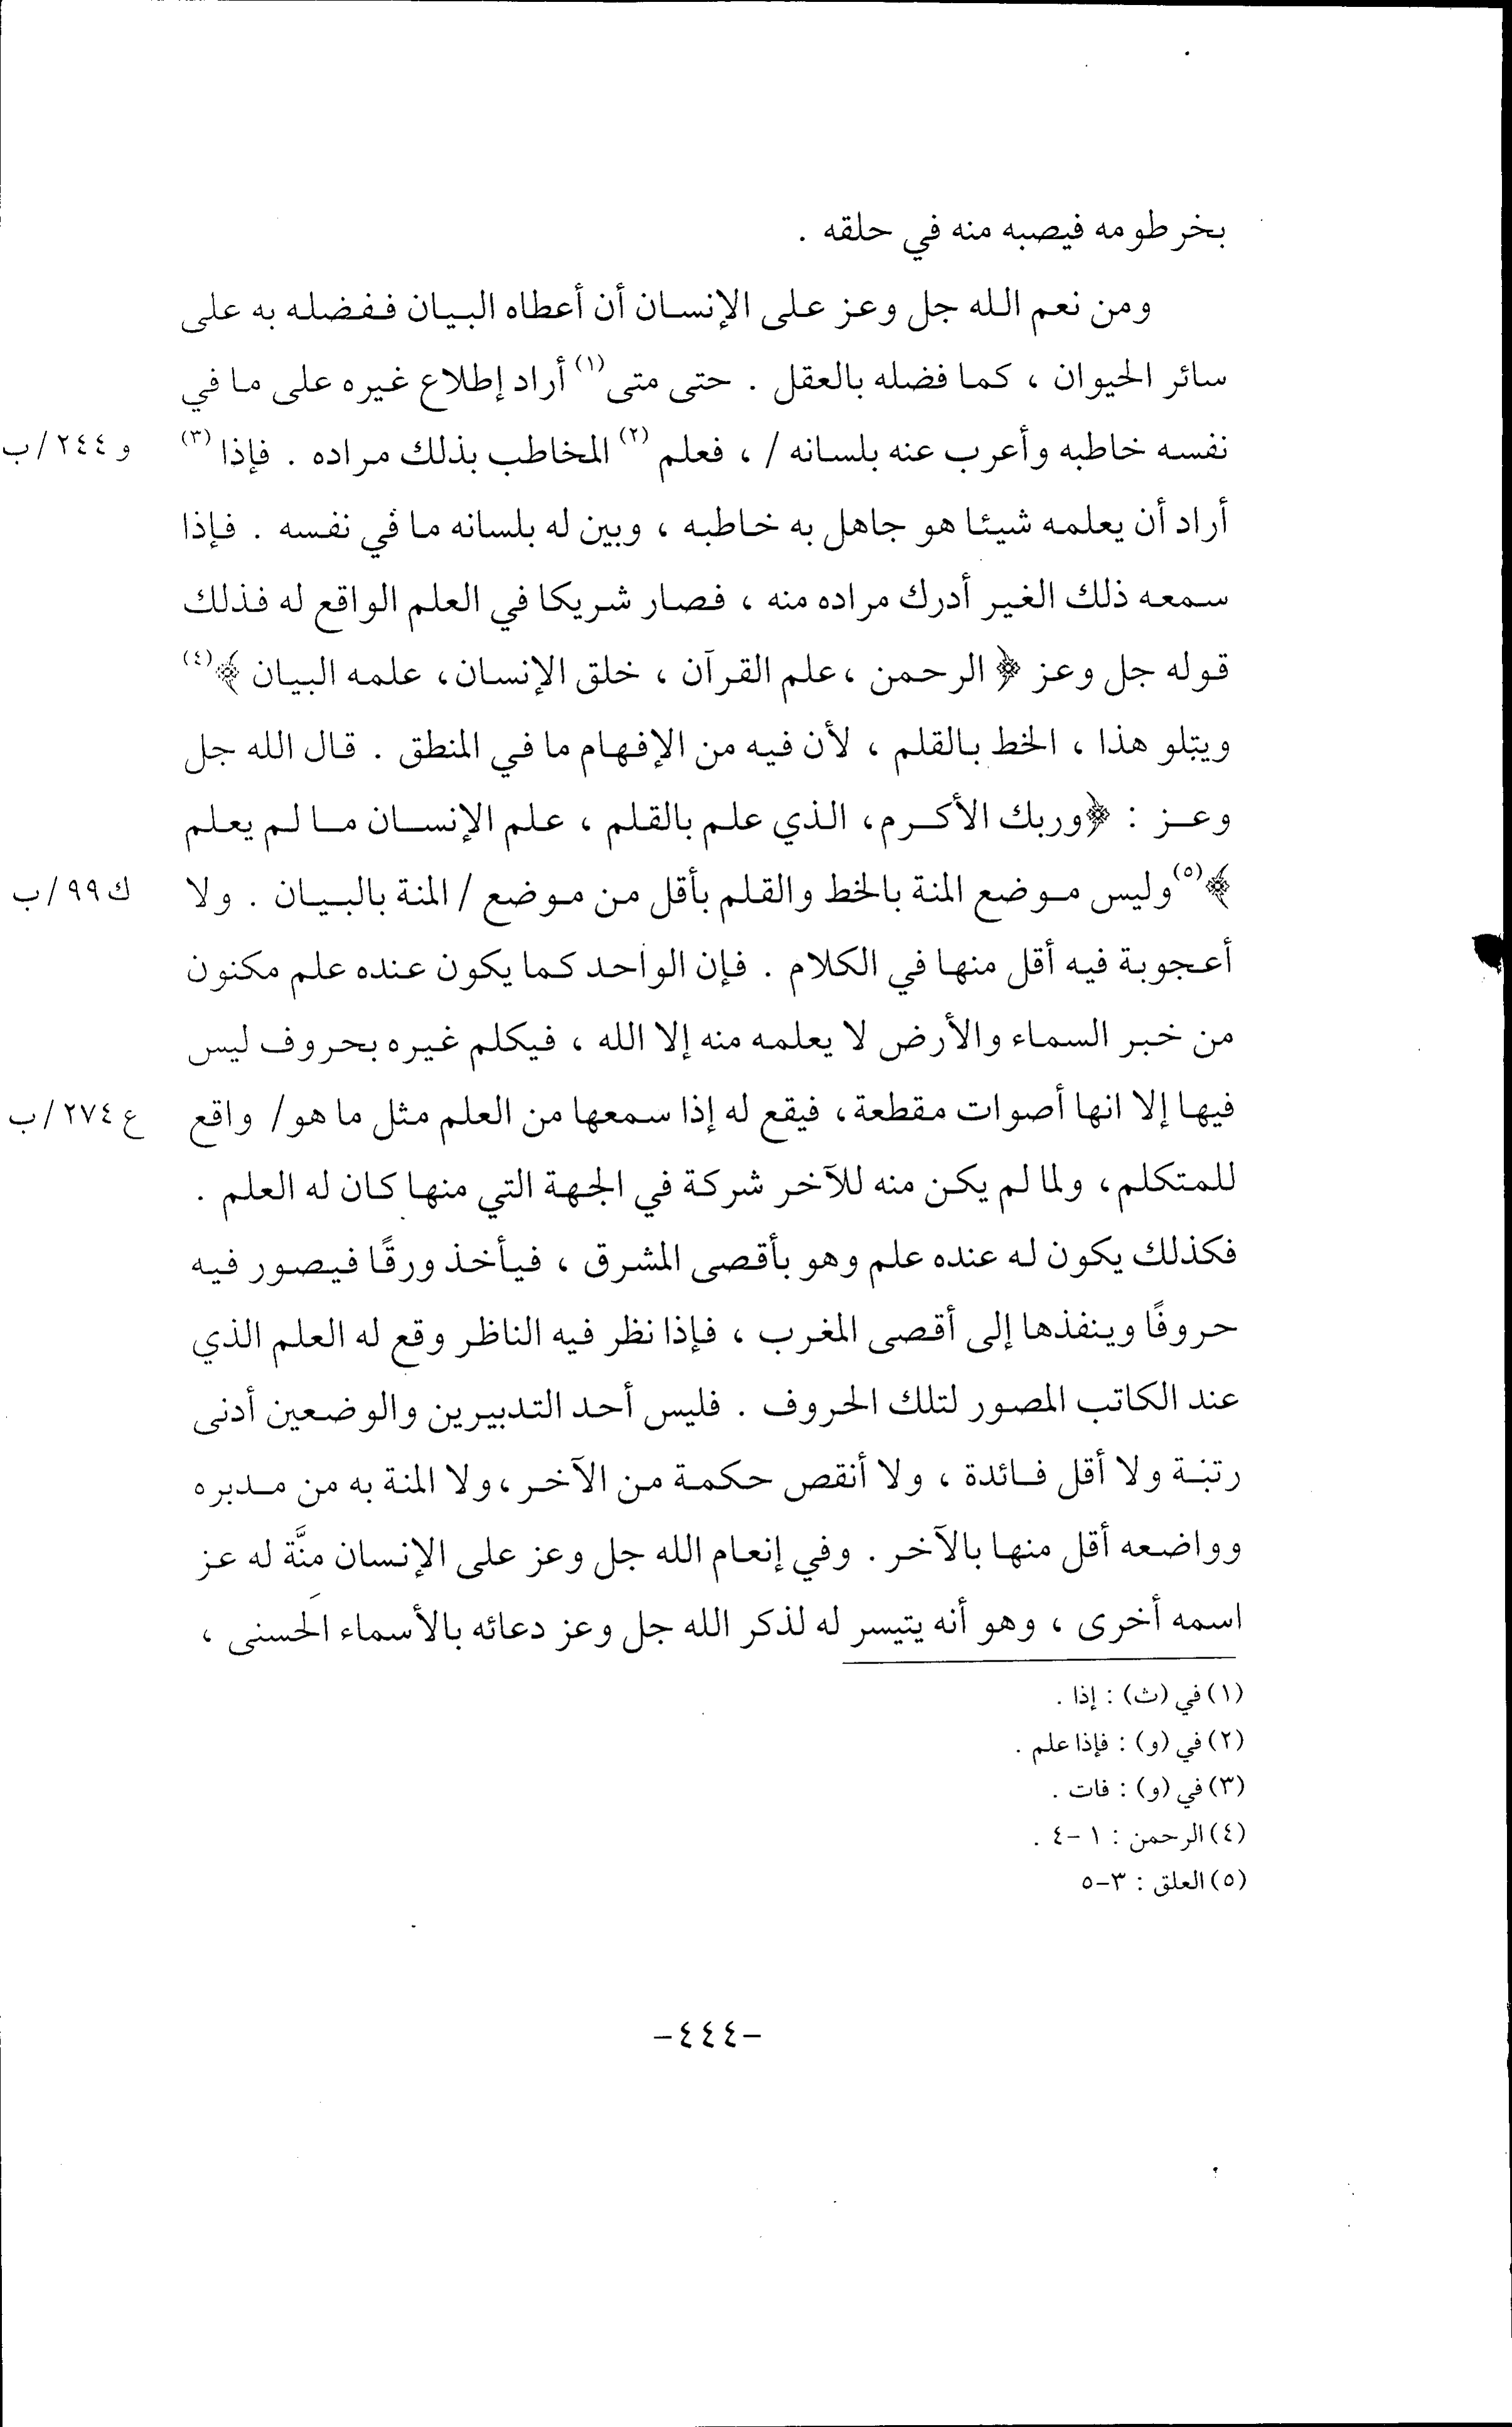 بخرطومه فيصبه منه في حلقه .
ومن نعم الله جل وعز على الإنسان أن أعطاه البيان ففضله به على
سائر الحيوان ، كما فضله بالعقل . حتى متى(١) أراد إطلاع غيره على ما في
نفسه خاطبه وأعرب عنه بلسانه / ، فعلم(٢) المخاطب بذلك مراده . فإذا(٣) و ٢٤٤/ب
أراد أن يعلمه شيئا هو جاهل به خاطبه ، وبين له بلسانه ما في نفسه . فإذا
سمعه ذلك الغير أدرك مراده منه ، فصار شريكا في العلم الواقع له فذلك
قوله جل وعز ﴿ الرحمن ، علم القرآن ، خلق الإنسان، علمه البيان ﴾(٤)
ويتلو هذا ، الخط بالقلم ، لأن فيه من الإفهام ما في المنطق . قال الله جل
وعز : ﴿وربك الأكرم، الذي علم بالقلم ، علم الإنسان ما لم يعلم
﴾(٥) وليس موضع المنة بالخط والقلم بأقل من موضع / المنة بالبيان . ولا ك ٩٩/ب
أعجوبة فيه أقل منها في الكلام . فإن الواحد كما يكون عنده علم مكنون
من خبر السماء والأرض لا يعلمه منه إلا الله ، فيكلم غيره بحروف ليس
فيها إلا انها أصوات مقطعة، فيقع له إذا سمعها من العلم مثل ما هو/ واقع ع ٢٧٤/ب
للمتكلم، ولما لم يكن منه للآخر شركة في الجهة التي منها كان له العلم .
فكذلك يكون له عنده علم وهو بأقصى المشرق ، فيأخذ ورقًا فيصور فيه
حروفًا وينفذها إلى أقصى المغرب ، فإذا نظر فيه الناظر وقع له العلم الذي
عند الكاتب المصور لتلك الحروف . فليس أحد التدبيرين والوضعين أدنى
رتبة ولا أقل فائدة ، ولا أنقص حكمة من الآخر، ولا المنة به من مدبره
وواضعه أقل منها بالآخر . وفي إنعام الله جل وعز على الإنسان منَّة له عز
اسمه أخرى ، وهو أنه يتيسر له لذكر الله جل وعز دعائه بالأسماء الحسنى ،
(١) في (ث) : إذا .
(٢) في (و) : فإذا علم .
(٣) في (و) : فات .
(٤) الرحمن : ١ -٤ .
(٥) العلق : ٣-٥
-٤٤٤-